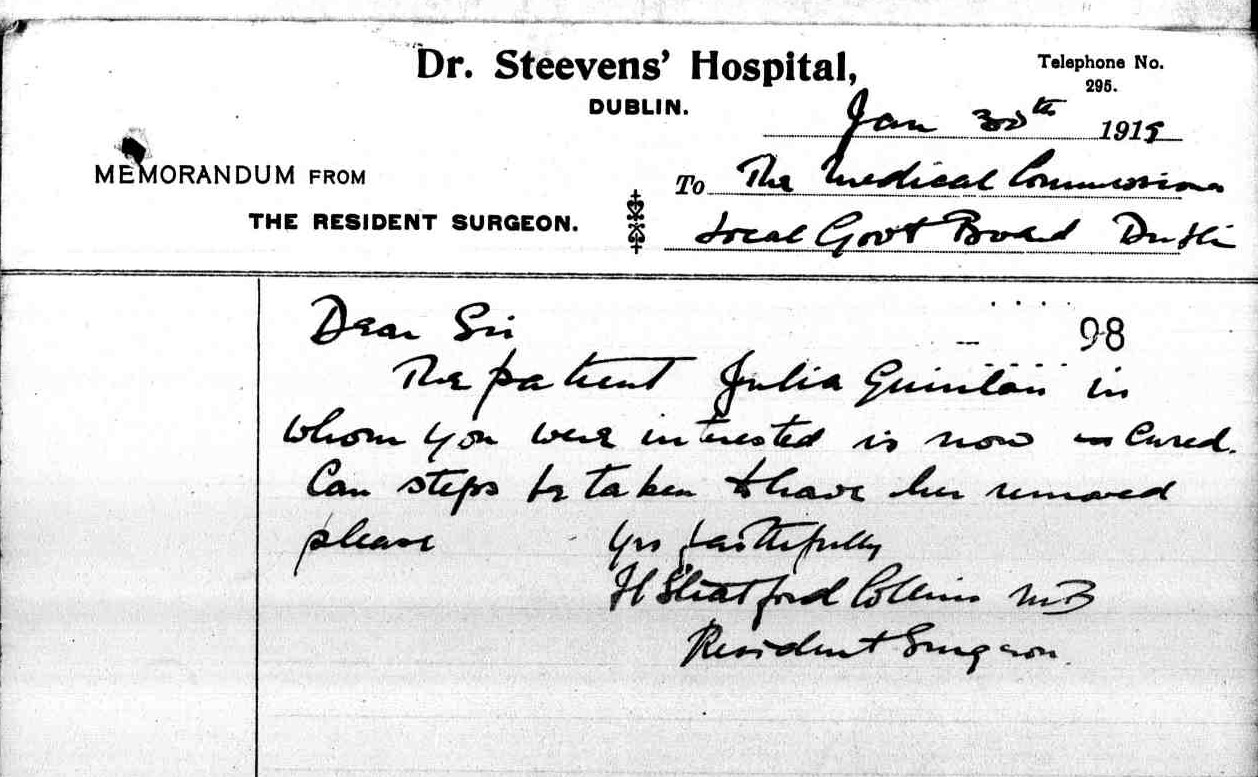 Dr. Steevens' Hospital,
Telephone No.
295.
DUBLIN.
Jan 30th 1915
MEMORANDUM FROM
To The Medical Commissioner
THE RESIDENT SURGEON.
Local Govt Board Dublin
98
Dear Sir
The patient Julia Quinlan in
whom you were interested is now cured.
Can steps be taken to have her removed
please Yrs faithfully
H Stratford Collins MB
Resident Surgeon.